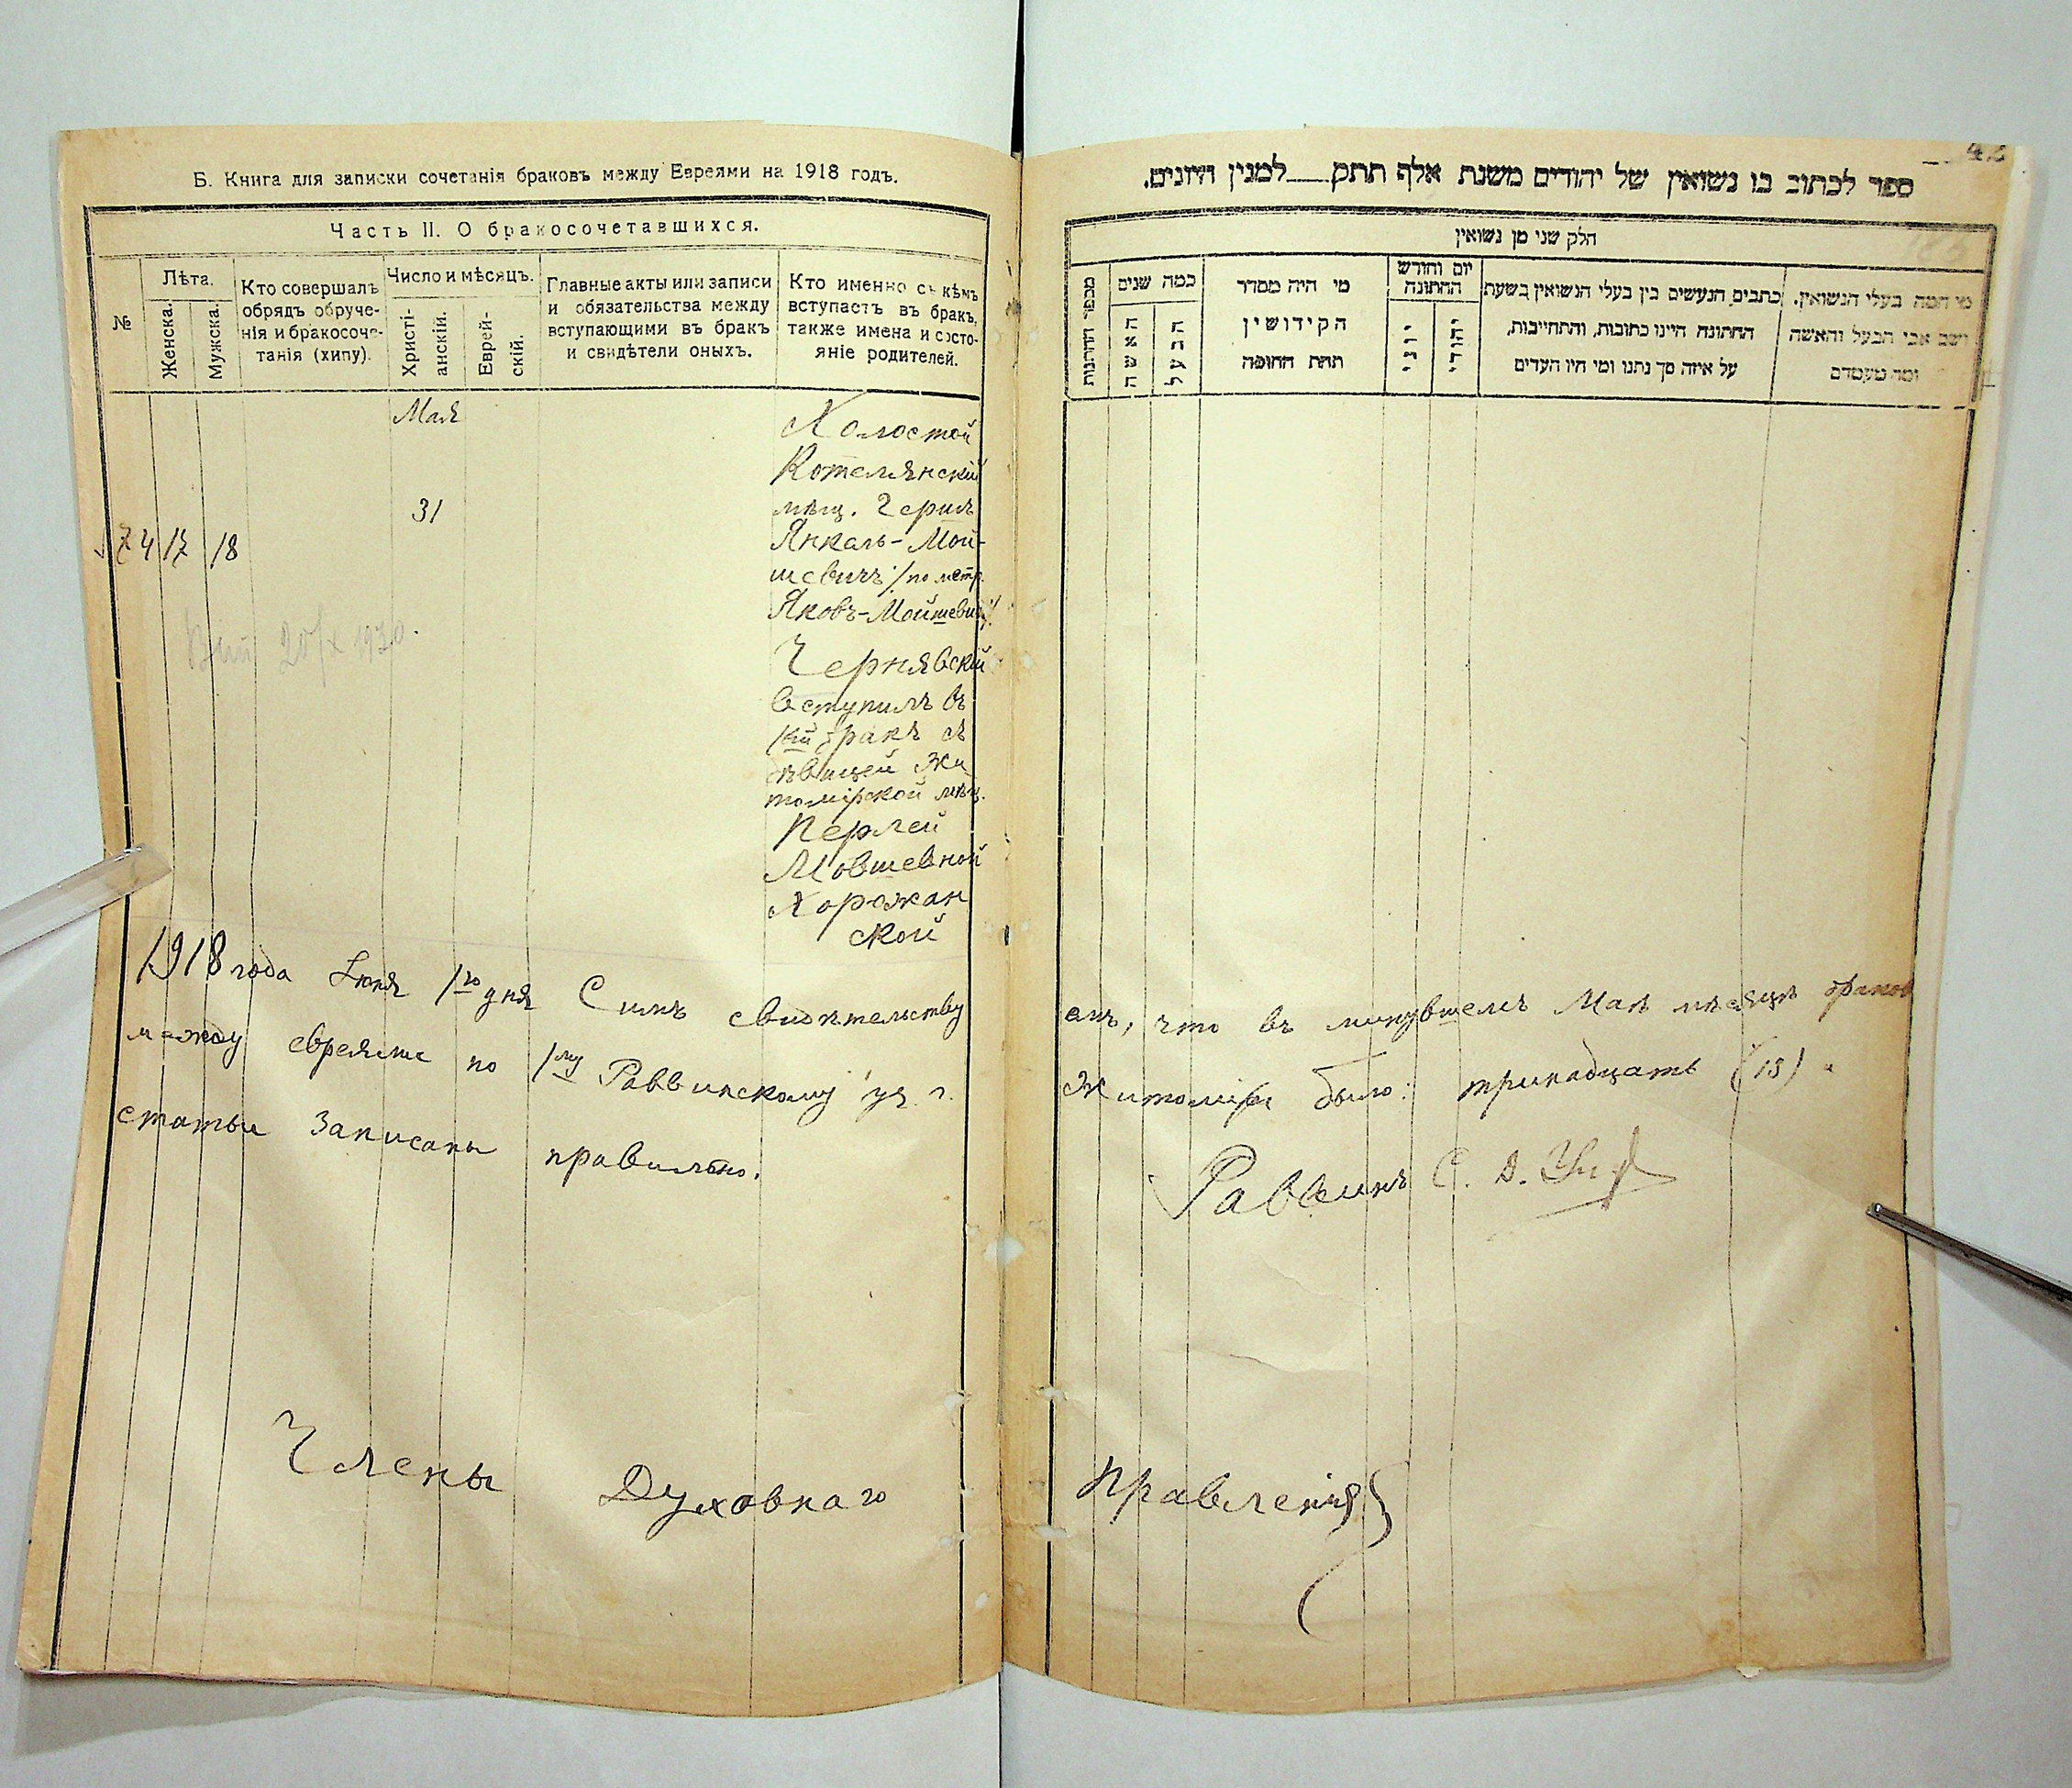 Б. Книга для записки сочетанія браковъ между Евреями на 1918 годъ.
Часть II. О бракосочетавшихся.
№
Лѣта.
Женска.
Мужска.
Кто совершалъ
обрядъ обруче-
нія и бракосоче-
танія (хипу).
Число и мѣсяцъ.
Христі-
анскій.
Еврей-
скій.
Главные акты или записи
и обязательства между
вступающими въ бракъ
и свидѣтели оныхъ.
Кто именно съ кѣмъ
вступаетъ въ бракъ,
также имена и состо-
яніе родителей.
Мая
31
74 17 18
Холостой
Котелянскій
мѣщ.
Янкель-Мой-
шевичъ /по метр.
Яковъ-Мойшевичъ/
Чернявскій
вступилъ въ
1ый бракъ съ
дѣвицей Жи
томірской мѣщ.
Перлей
Мовшевной
Хорожан
ской
20/X 1930.
ספר לכתוב בו נשואין של יהודים משנת אלף תתק למנין היונים.
חלק שני מן נשואין
מספר החתונות
כמה שנים
האשה
הבעל
מי היה מסדר
הקידושין
תחת החופה
יום וחודש
החתונה
יוני
יהודי
כתבים הנעשים בין בעלי הנשואין בשעת
החתונה היינו כתובות, והתחייבות,
על איזה סך נתנו ומי היו העדים
מי המה בעלי הנשואין,
ושם אבי הבעל והאשה
ומה מעמדם
1918 года Іюня 1го дня Симъ свидѣтельству емъ, что въ минувшемъ Маѣ мѣсяцѣ браковъ
между евреями по 1му Раввинскому уч. г. Житоміра было: тринадцать (13)
статьи записаны правильно.
Раввинъ С. Д.
Члены Духовнаго Правленія